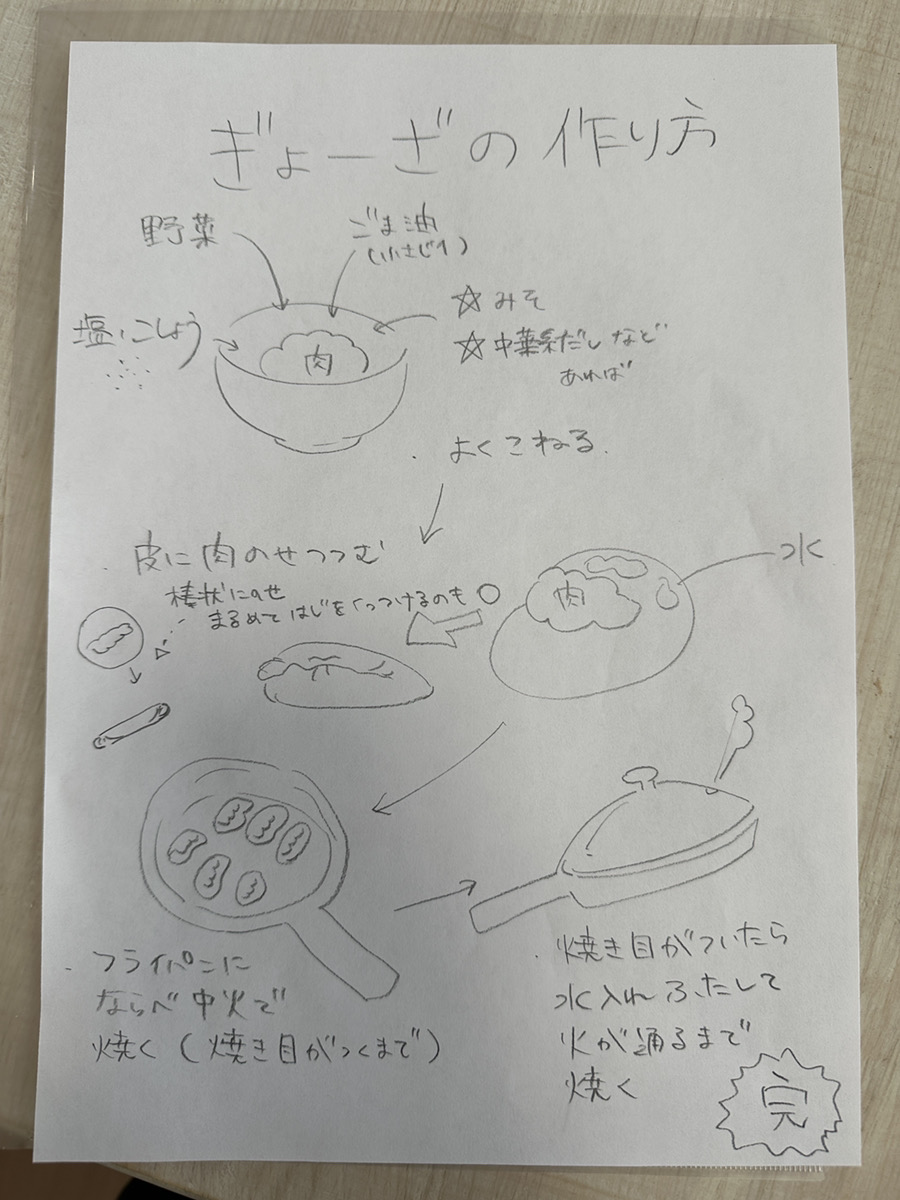 ぎょーざの作り方
野菜
ごま油
(小さじ1)
塩、こしょう
肉
☆みそ
☆中華系だしなど
あれば
・よくこねる.
・皮に肉のせつつむ
棒状にのせ
まるめてはじをくっつけるのも○
肉
水
・フライパンに
ならべ中火で
焼く(焼き目がつくまで)
・焼き目がついたら
水入れふたして
火が通るまで
焼く
完